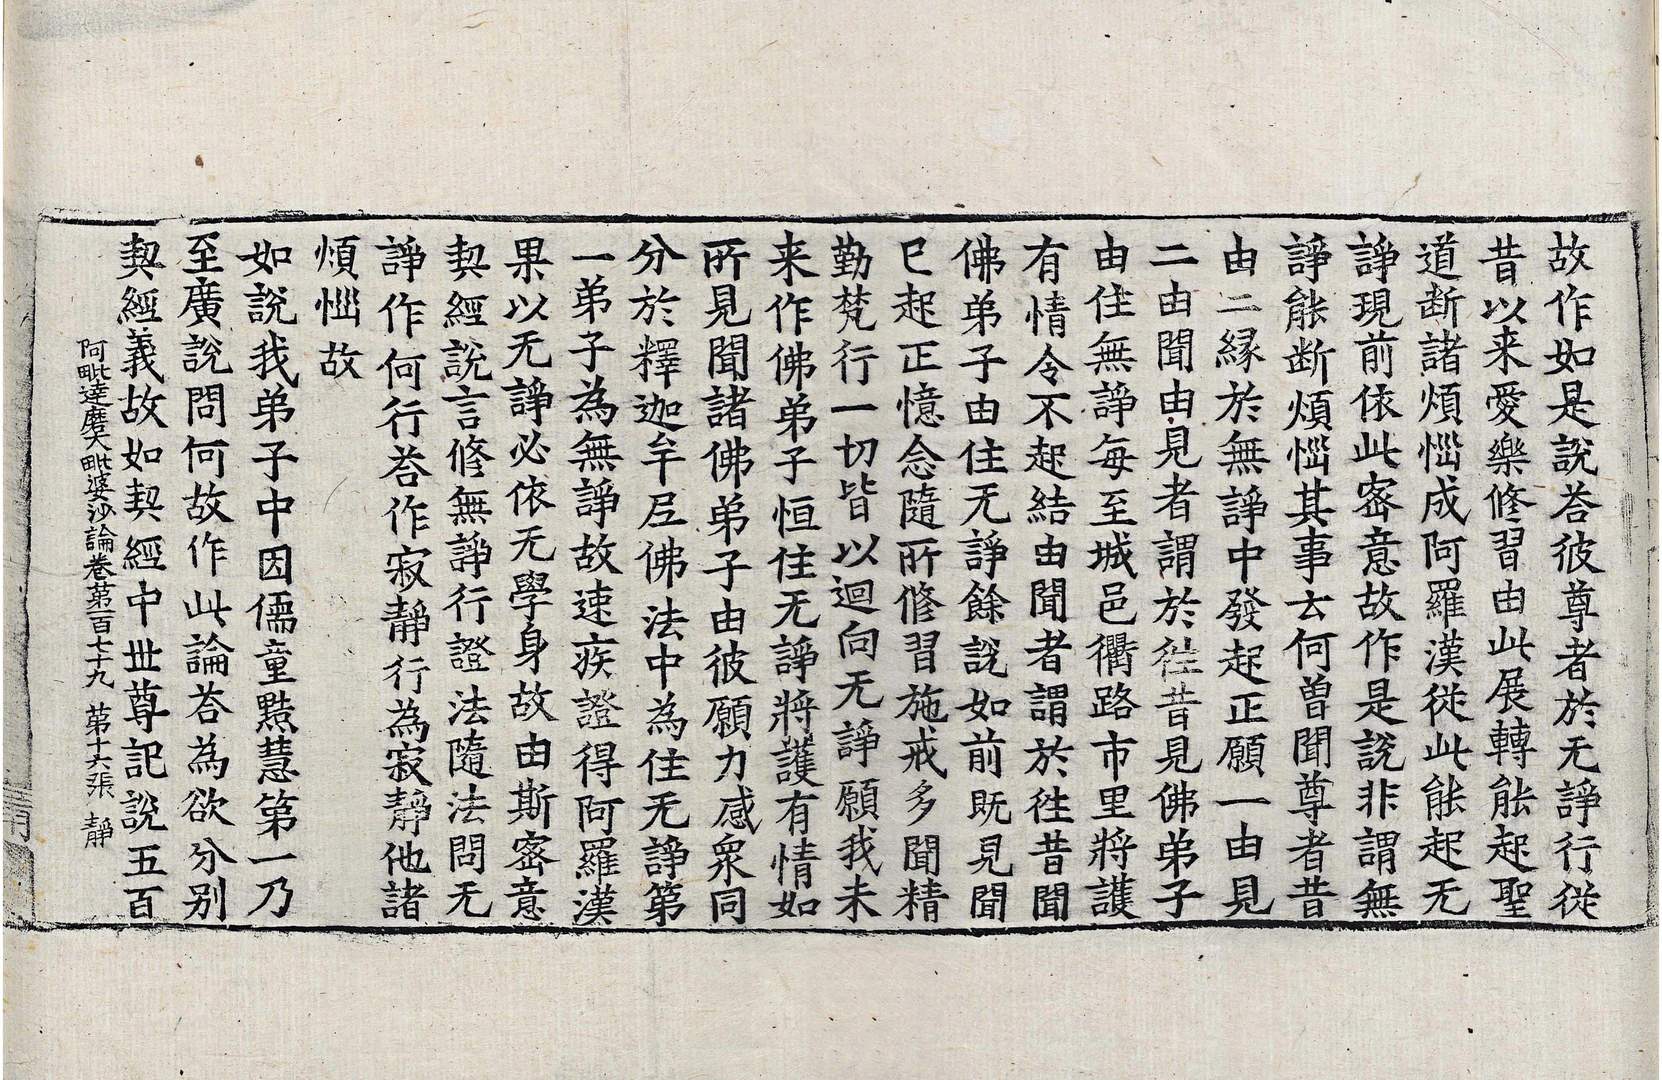 故作如是說荅彼尊者於无諍行從
昔以来愛樂修習由此展轉能起聖
道断諸煩惱成阿羅漢從此能起无
諍現前依此密意故作是說非謂無
諍能断煩惱其事云何曾聞尊者昔
由二縁於無諍中發起正願一由見
二由聞由見者謂於徃昔見佛弟子
由住無諍每至城邑衢路市里將護
有情令不起結由聞者謂於徃昔聞
佛弟子由住无諍餘說如前既見聞
已起正憶念隨所修習施戒多聞精
勤梵行一切皆以迴向无諍願我未
来作佛弟子恒住无諍將護有情如
所見聞諸佛弟子由彼願力感衆同
分於釋迦牟尼佛法中為住无諍第
一弟子為無諍故速疾證得阿羅漢
果以无諍必依无學身故由斯密意
契經說言修無諍行證法隨法問无
諍作何行荅作寂靜行為寂靜他諸
煩惱故
如說我弟子中因儒童黠慧第一乃
至廣說問何故作此論荅為欲分别
契經義故如契經中世尊記說五百
阿毗達磨大毗婆沙論卷第一百七十九　第十六張　靜